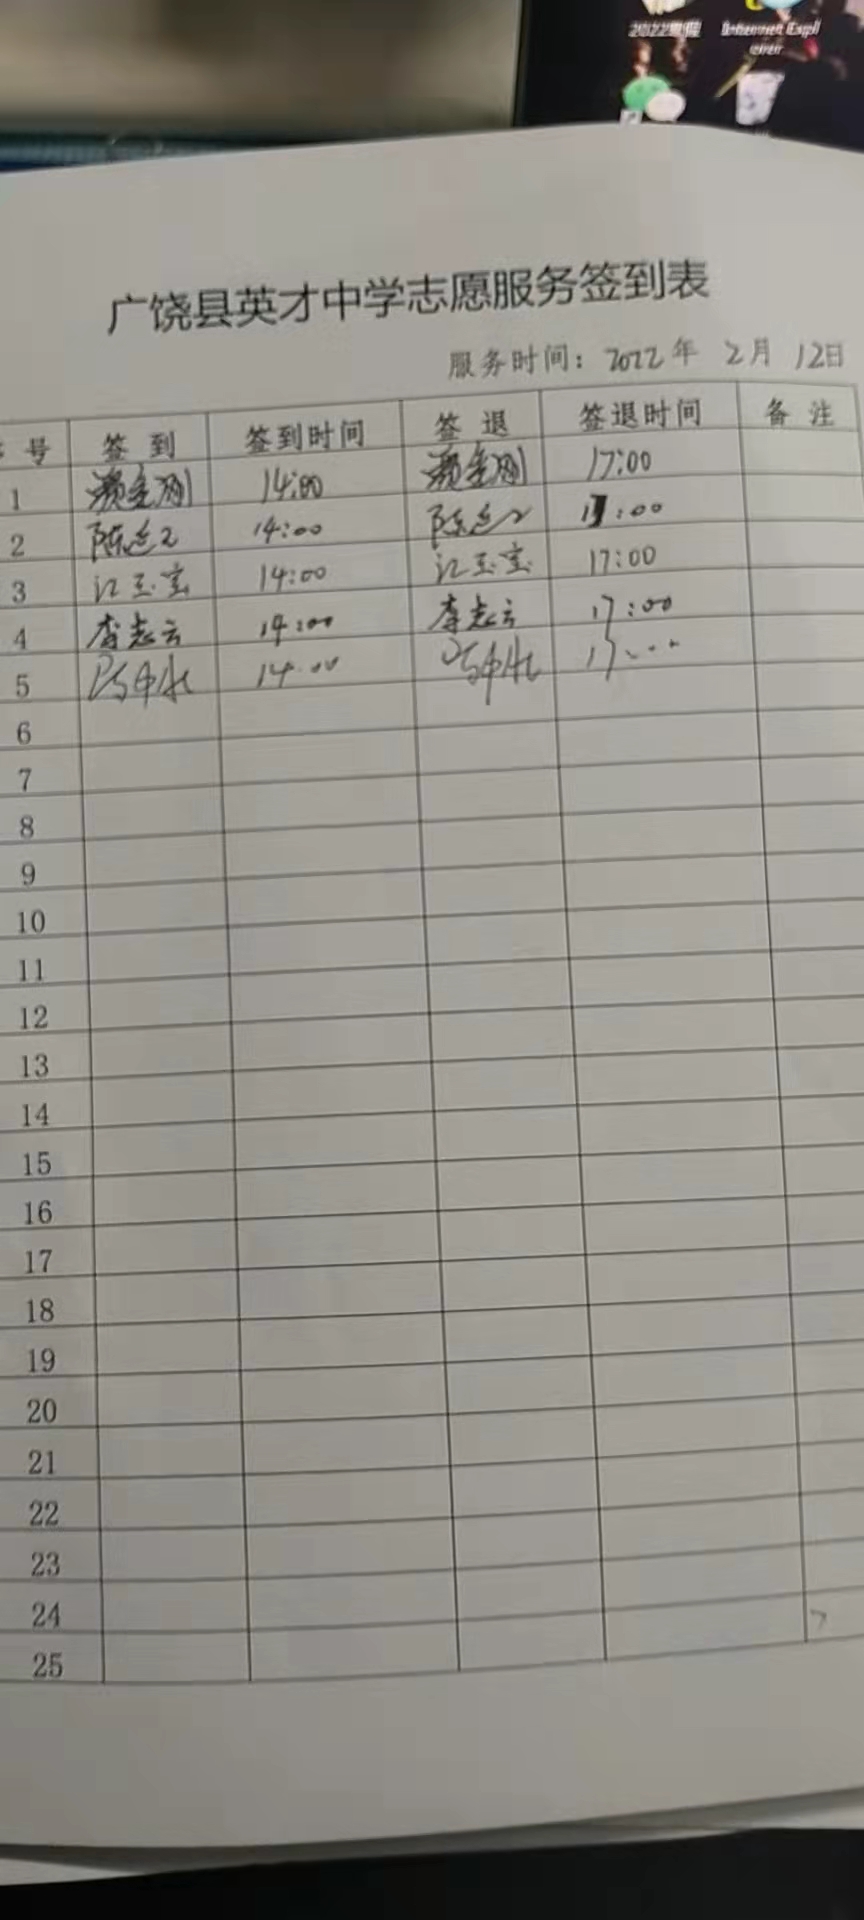 广饶县英才中学志愿服务签到表
服务时间：2022年 2月 12日
号 签到 签到时间 签退 签退时间 备注
1 14:00 17:00
2 陈 14:00 陈 17:00
3 江玉宝 14:00 江玉宝 17:00
4 李志云 14:00 李志云 17:00
5 14:00
6
7
8
9
10
11
12
13
14
15
16
17
18
19
20
21
22
23
24
25